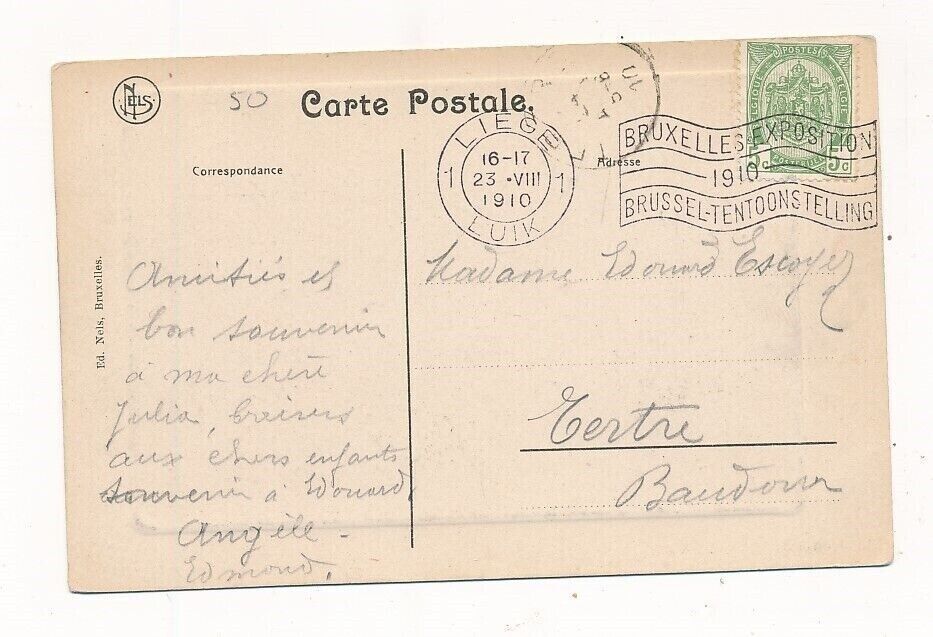 NELS
50
Carte Postale.
Correspondance
Adresse
LIEGE
1 16-17 1
23 •VIII
1910
LUIK
BRUXELLES-EXPOSITION
1910
BRUSSEL-TENTOONSTELLING
POSTES
BELGIQUE BELGIE
5c POSTERIJEN 5c
Amitiés et
bon souvenir
à ma chère
Julia, baisers
aux chers enfants
souvenir à Edouard.
Angèle -
Edmond.
Madame Edouard Escoyez
Tertre
Baudour
Ed. Nels, Bruxelles.